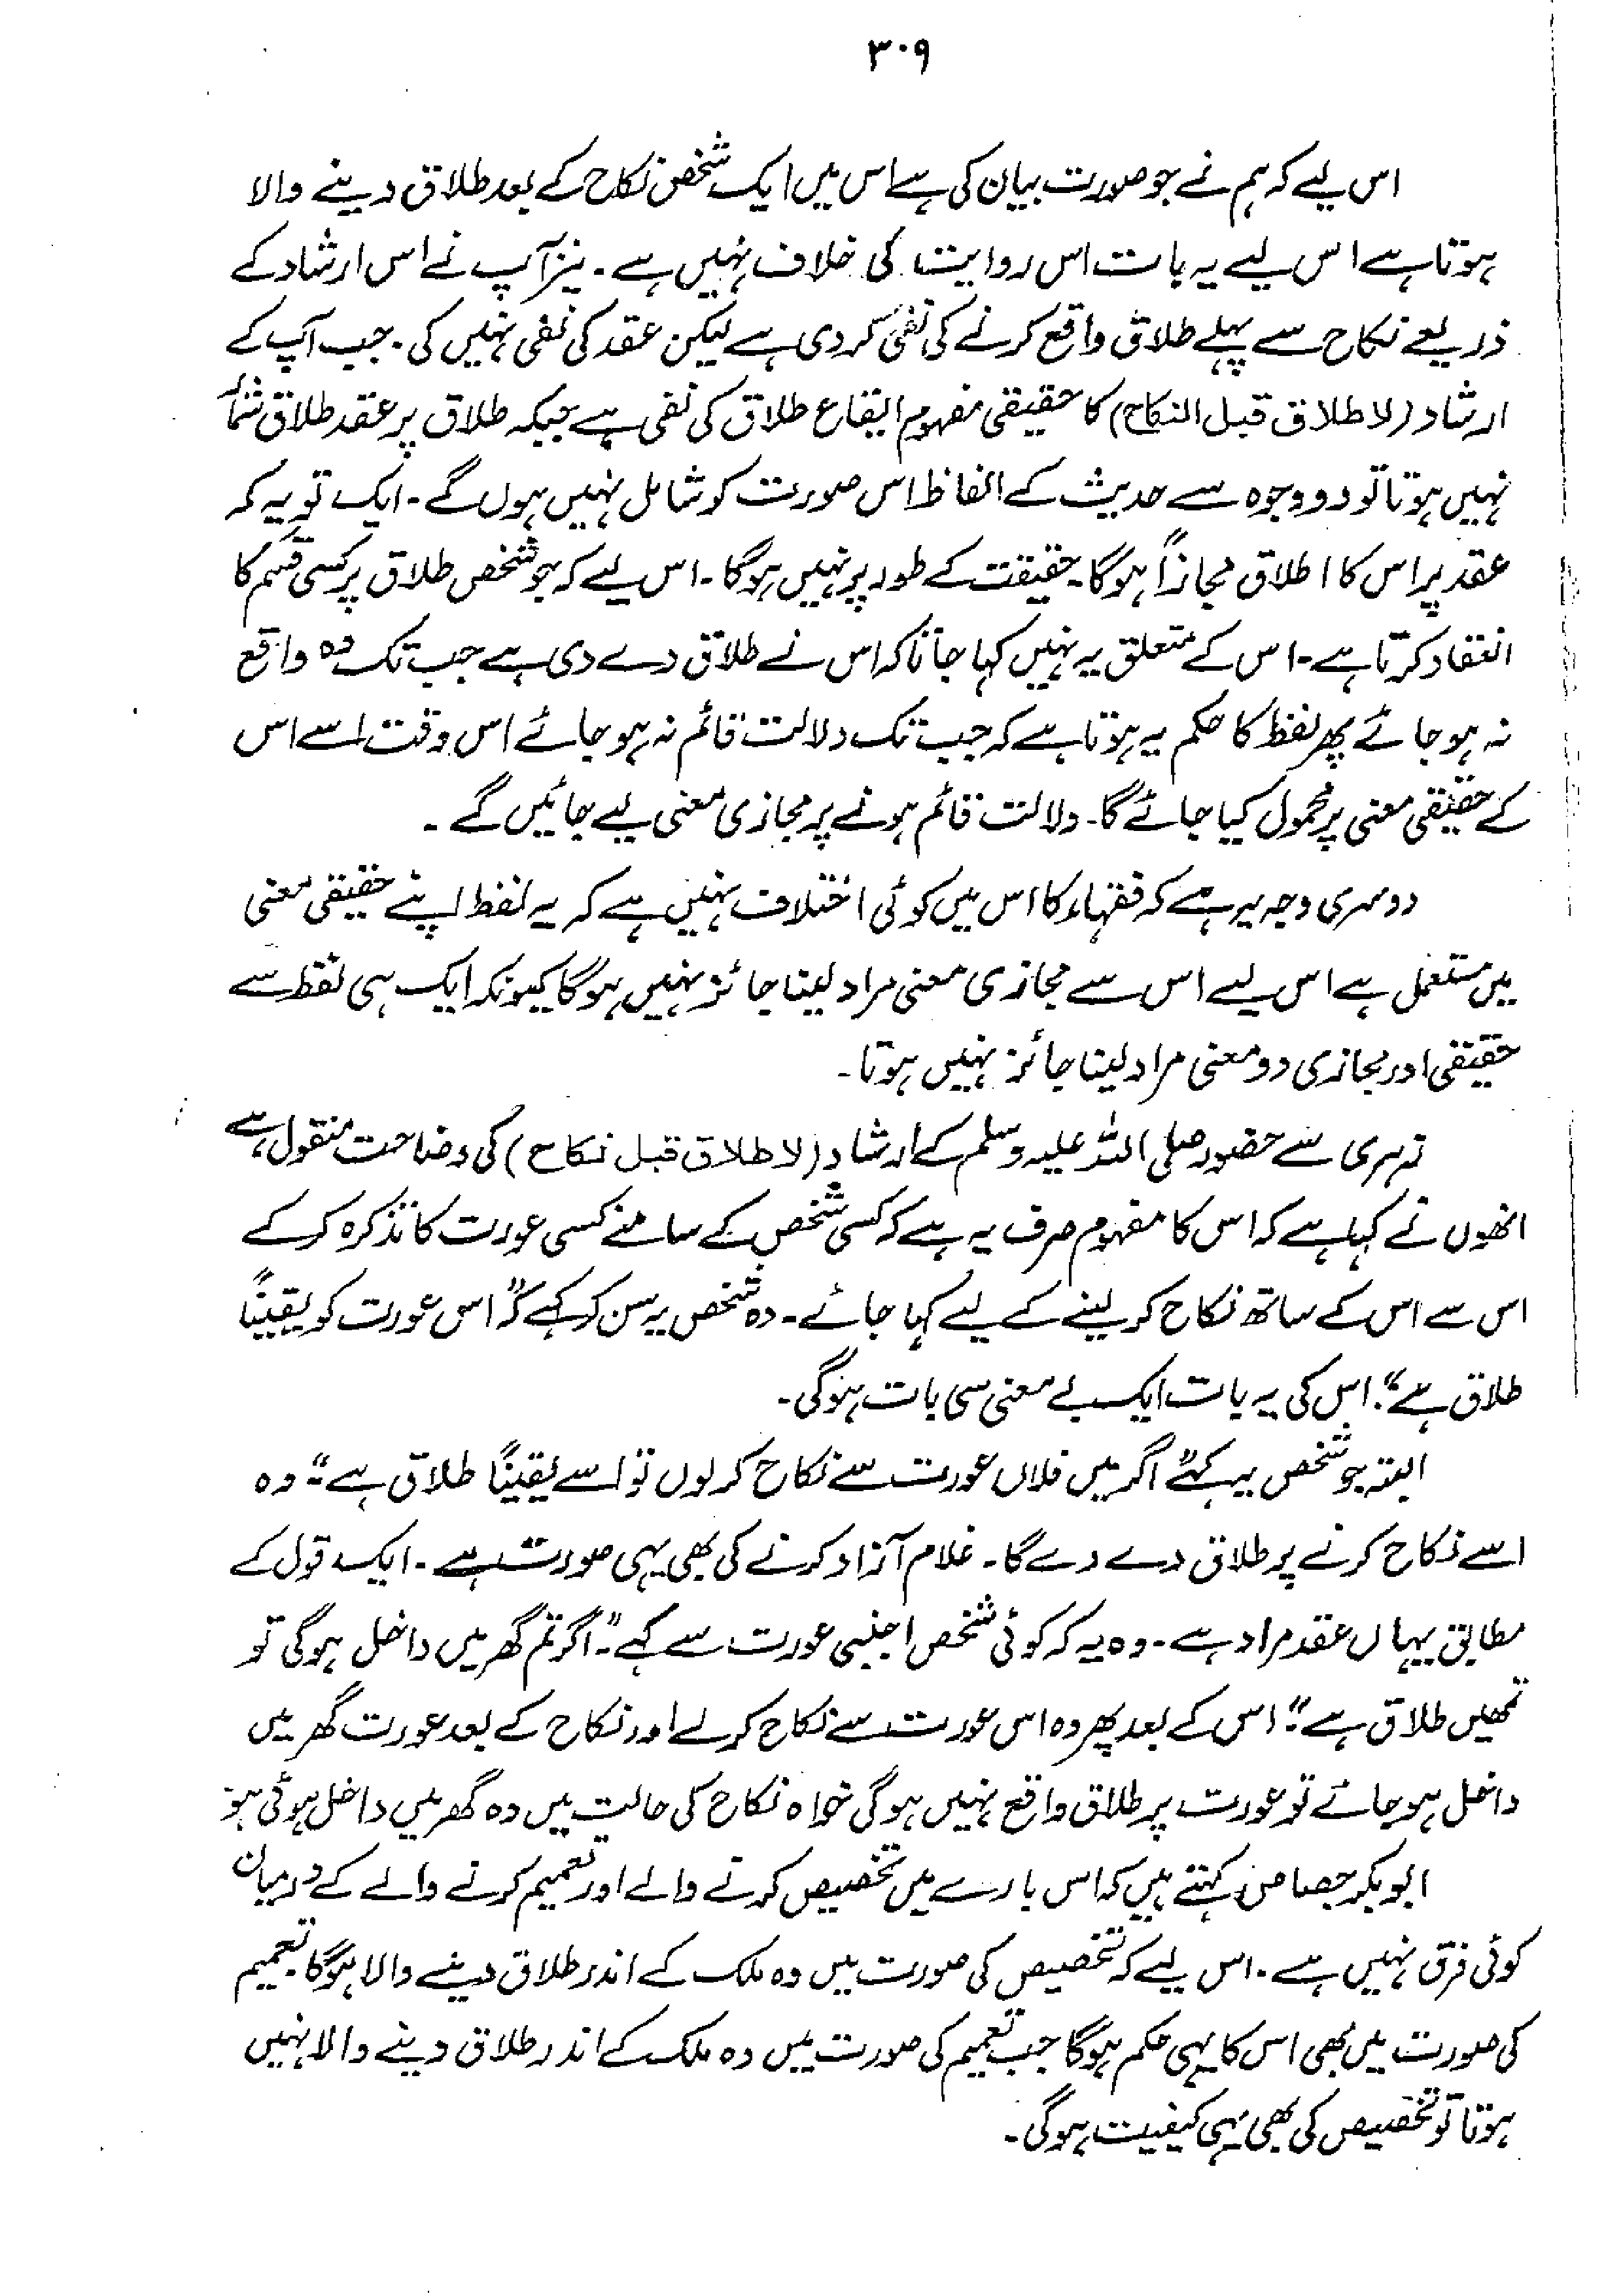 ۳۰۹
اس لیے کہ ہم نے جو صورت بیان کی ہے اس میں ایک شخص نکاح کے بعد طلاق دینے والا
ہوتا ہے اس لیے یہ بات اس روایت کی خلاف نہیں ہے۔ نیز آپ نے اس ارشاد کے
ذریعے نکاح سے پہلے طلاق واقع کرنے کی نفی کر دی ہے لیکن عقد کی نفی نہیں کی۔ جب آپ کے
ارشاد (لا طلاق قبل النکاح) کا حقیقی مفہوم ایقاع طلاق کی نفی ہے جبکہ طلاق پر عقد طلاق شمار
نہیں ہوتا تو دو وجوہ سے حدیث کے الفاظ اس صورت کو شامل نہیں ہوں گے۔ ایک تو یہ کہ
عقد پر اس کا اطلاق مجازاً ہوگا۔ حقیقت کے طور پر نہیں ہوگا۔ اس لیے کہ جو شخص طلاق پر کسی قسم کا
انعقاد کرتا ہے۔ اس کے متعلق یہ نہیں کہا جاتا کہ اس نے طلاق دے دی ہے جب تک وہ واقع
نہ ہو جائے پھر لفظ کا حکم یہ ہوتا ہے کہ جب تک دلالت قائم نہ ہو جائے اس وقت اسے اس
کے حقیقی معنی پر محمول کیا جائے گا۔ دلالت قائم ہونے پر مجازی معنی لیے جائیں گے ۔
دوسری وجہ یہ ہے کہ فقہاء کا اس میں کوئی اختلاف نہیں ہے کہ یہ لفظ اپنے حقیقی معنی
میں مستعمل ہے اس لیے اس سے مجازی معنی مراد لینا جائز نہیں ہوگا کیونکہ ایک ہی لفظ سے
حقیقی اور مجازی دو معنی مراد لینا جائز نہیں ہوتا۔
زہری سے حضور صلی اللہ علیہ وسلم کے ارشاد (لا طلاق قبل نکاح) کی وضاحت منقول ہے
انھوں نے کہا ہے کہ اس کا مفہوم صرف یہ ہے کہ کسی شخص کے سامنے کسی عورت کا تذکرہ کر کے
اس سے اس کے ساتھ نکاح کر لینے کے لیے کہا جائے۔ وہ شخص یہ سن کر کہے کہ "اس عورت کو یقیناً
طلاق ہے"۔ اس کی یہ بات ایک بے معنی سی بات ہوگی۔
البتہ جو شخص یہ کہے "اگر میں فلاں عورت سے نکاح کر لوں تو اسے یقیناً طلاق ہے" وہ
اسے نکاح کرنے پر طلاق دے دے گا۔ غلام آزاد کرنے کی بھی یہی صورت ہے۔ ایک قول کے
مطابق یہاں عقد مراد ہے۔ وہ یہ کہ کوئی شخص اجنبی عورت سے کہے "۔ اگر تم گھر میں داخل ہوگی تو
تمھیں طلاق ہے"۔ اس کے بعد پھر وہ اس عورت سے نکاح کر لے اور نکاح کے بعد عورت گھر میں
داخل ہو جائے تو عورت پر طلاق واقع نہیں ہوگی خواہ نکاح کی حالت میں وہ گھر میں داخل ہوئی ہو
ابوبکر جصاص کہتے ہیں کہ اس بارے میں تخصیص کرنے والے اور تعمیم کرنے والے کے درمیان
کوئی فرق نہیں ہے۔ اس لیے کہ تخصیص کی صورت میں وہ ملک کے اندر طلاق دینے والا ہوگا۔ تعمیم
کی صورت میں بھی اس کا یہی حکم ہوگا جب تعمیم کی صورت میں وہ ملک کے اندر طلاق دینے والا نہیں
ہوتا تو تخصیص کی بھی یہی کیفیت ہوگی۔